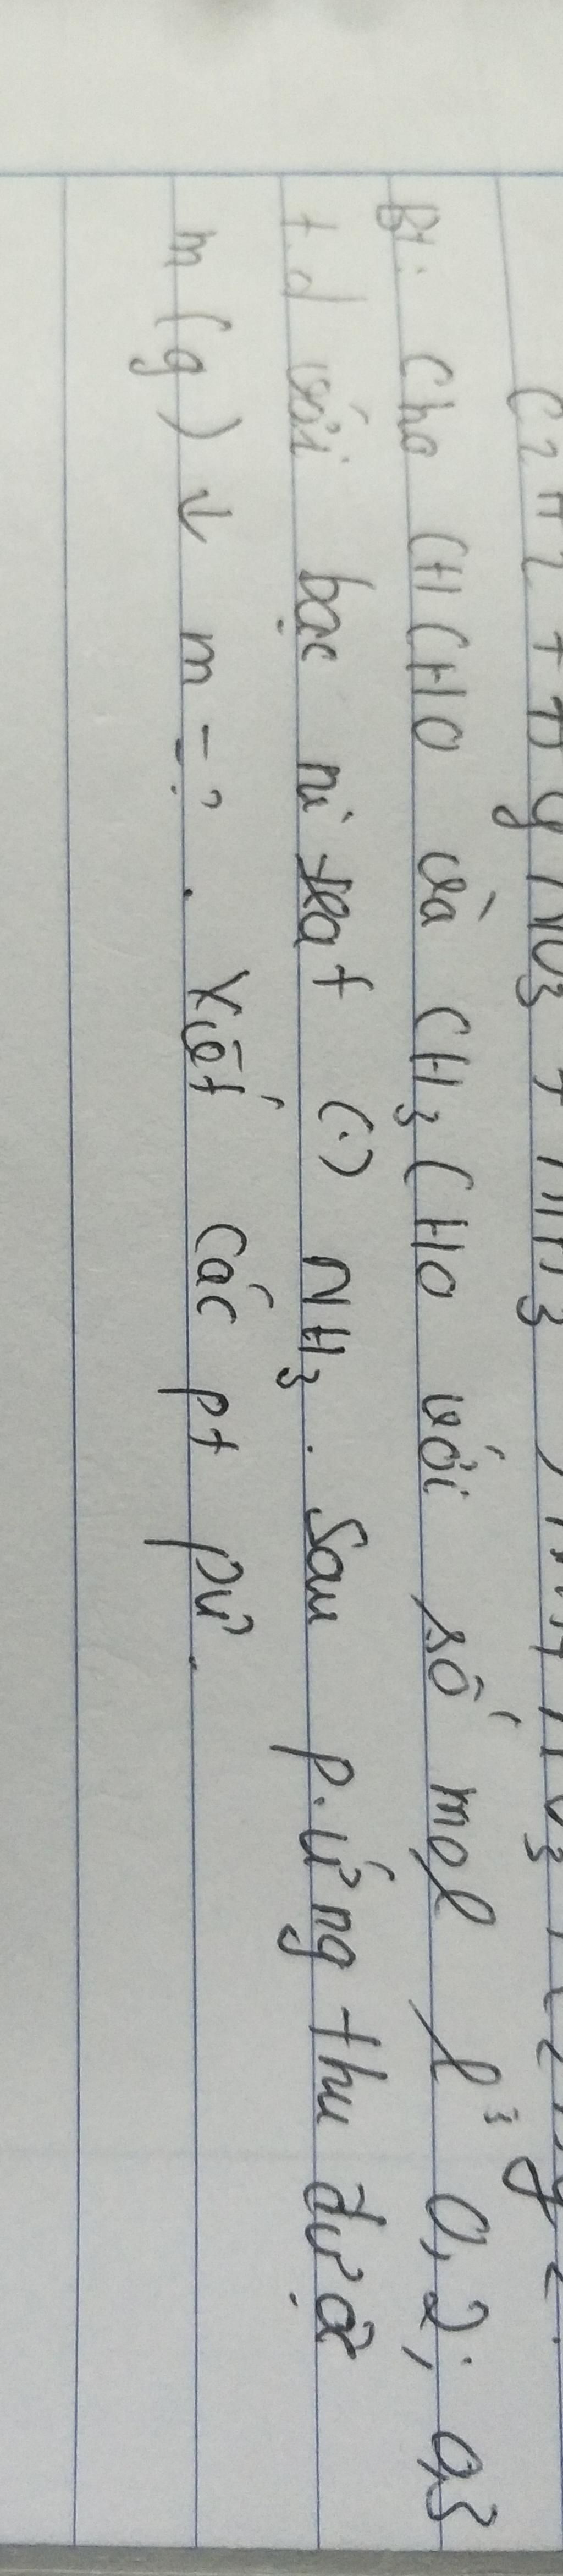 C2H2 + AgNO3 + NH3
Bt: Cho CHCHO và CH3CHO với số mol lª 0,2; 0,3
t.d với bạc nitrat (.) NH3. Sau p.ứng thu được
m (g) ↓ m = ? . Viết các pt pứ.